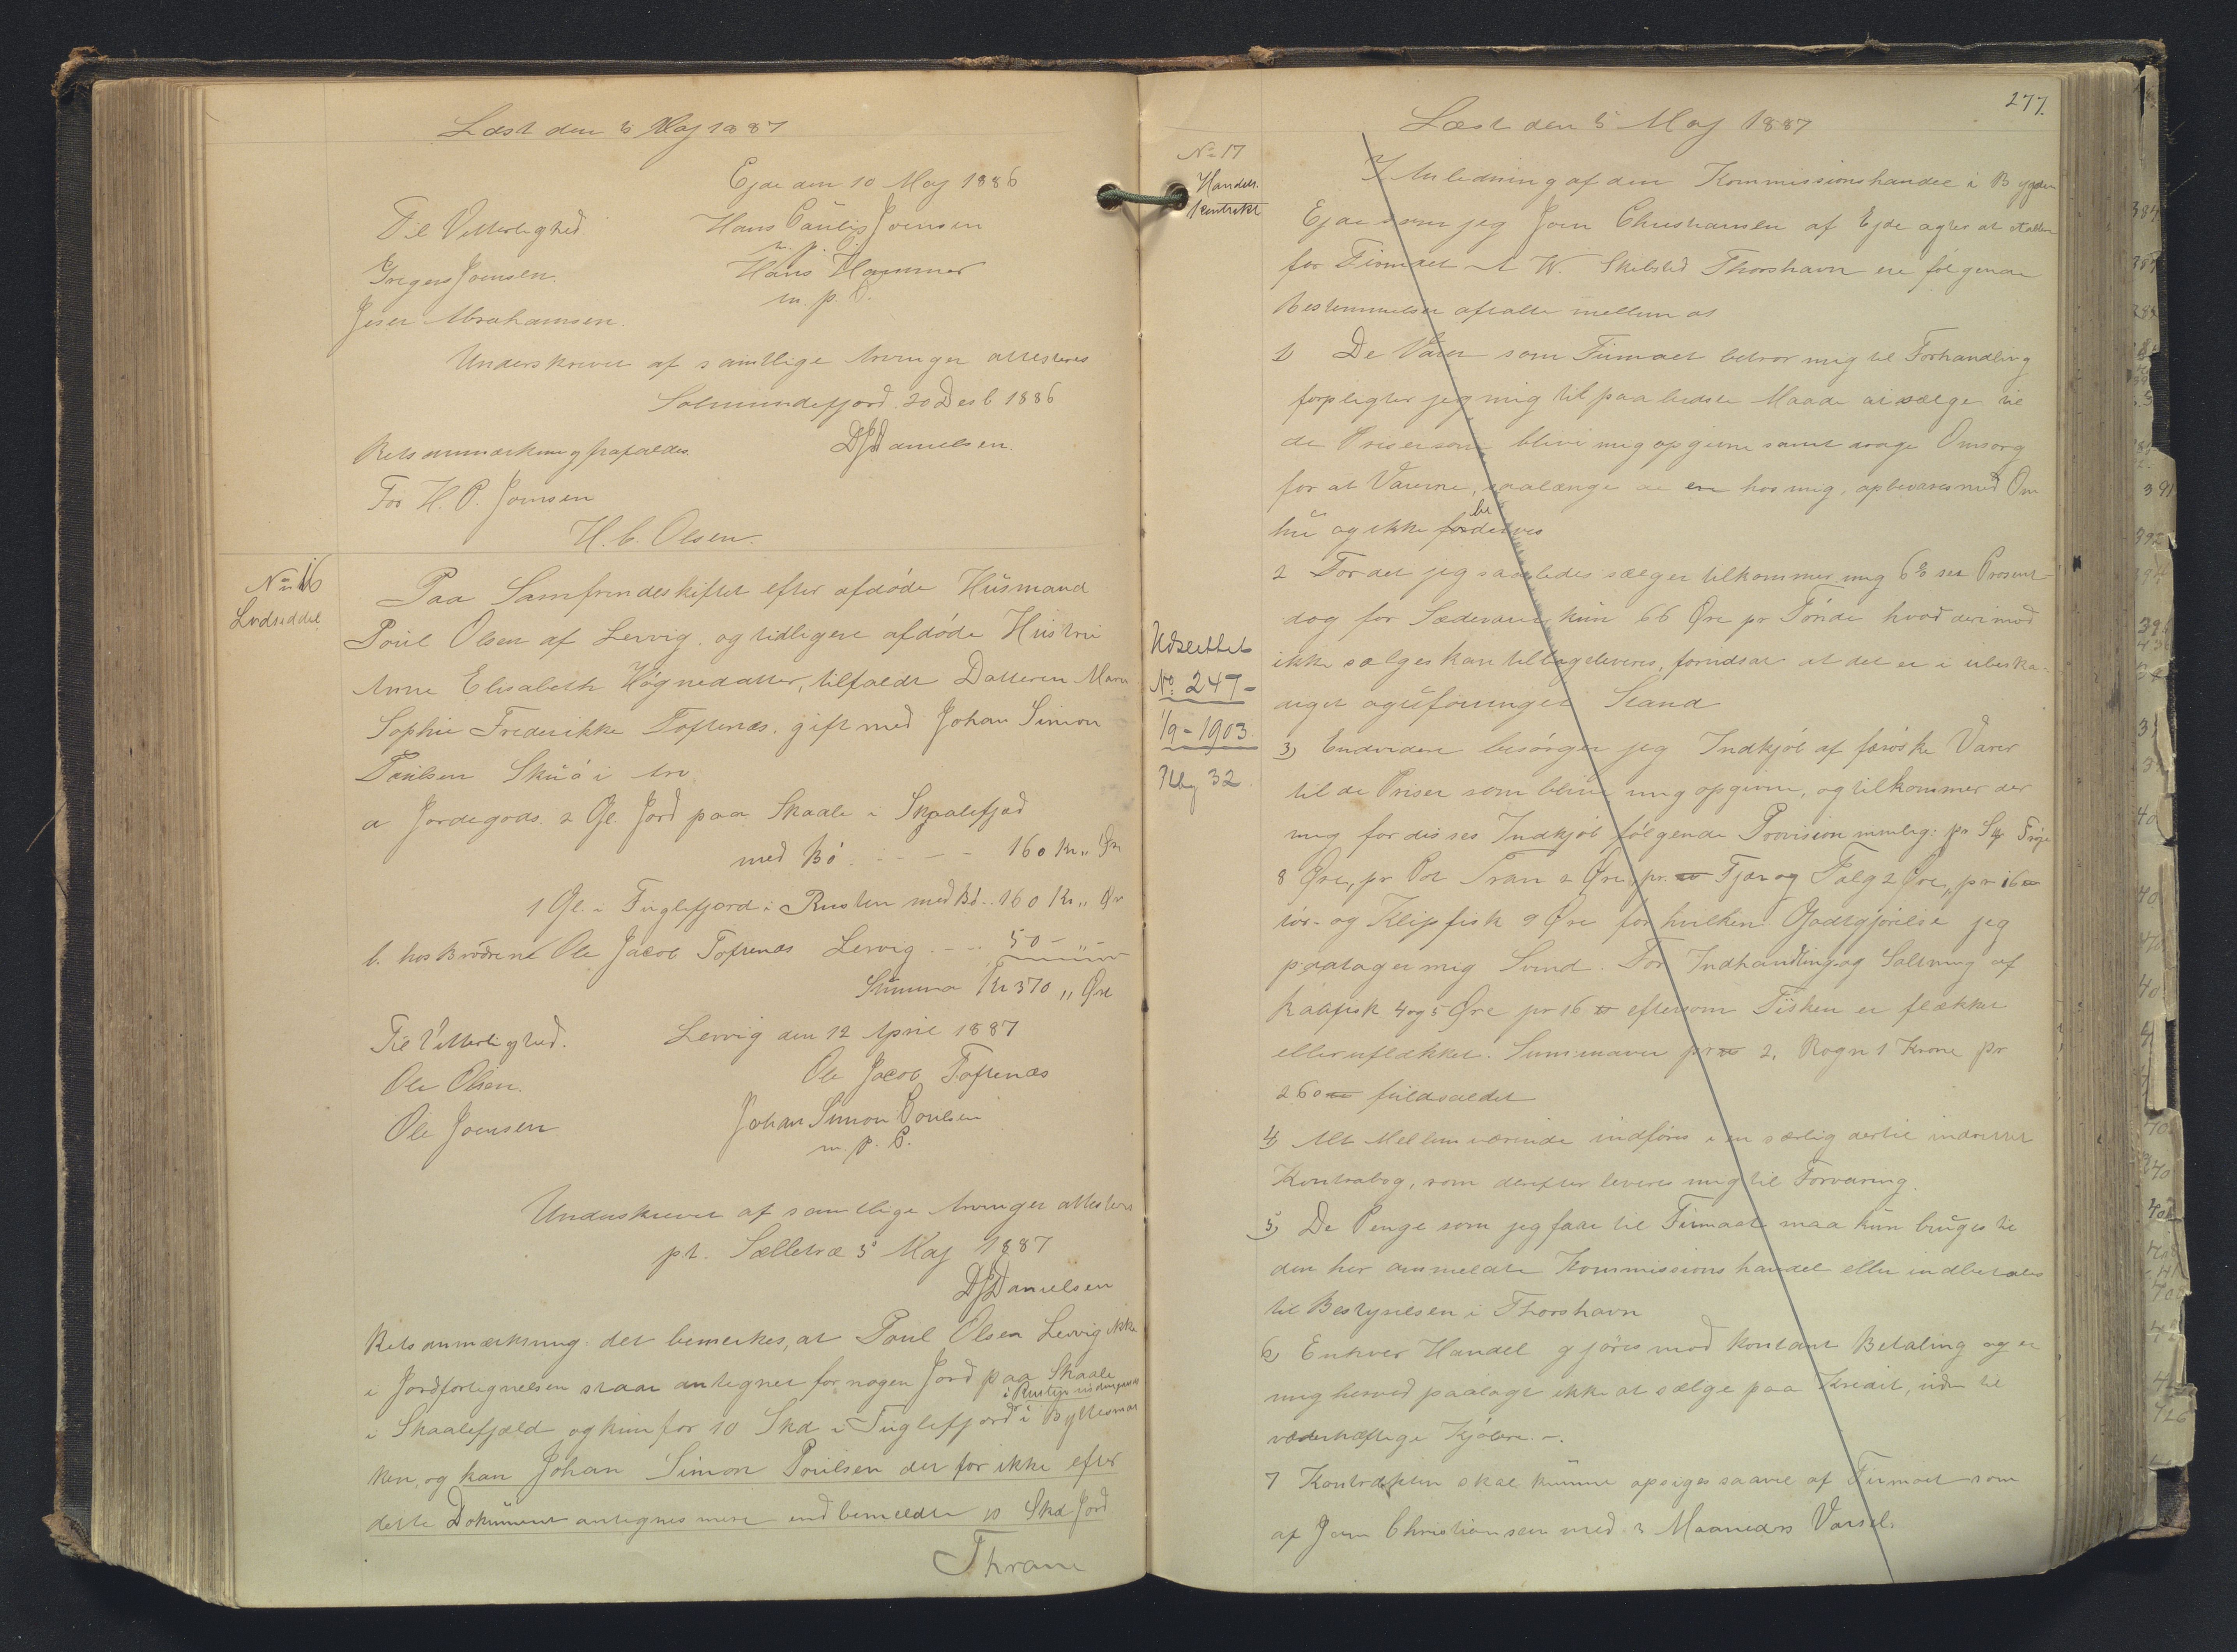 Læst den 5 Maj 1887
Ejde den 10 Maj 1886
Til Vitterlighed. Hans Paulis Joensen
m. p. P.
Gregers Joensen. Hans Hammer
m. p. P.
Jeser Abrahamsen.
Underskrevet af samtlige Arvinger attesteres
Solmundefjord. 20 Desb 1886
Retsanmærkning frafaldes. DJDanielsen.
For H. P. Joensen
H. C. Olsen.
No 16
Lodseddel
Paa Samfrendeskiftet efter afdøde Husmand
Poul Olsen af Lervig. og tidligere afdøde Hustru
Anne Elisabeth Høgnedatter, tilfaldt Datteren Maren
Sophie Frederikke Toftenæs. gift med Johan Simon
Poulsen Skuø i Arv
a Jordegods. 2 Gl. Jord paa Skaale i Skaalefjød
med Bø. - - - - 160 Kr „ Øre
1 Gl. i Fuglefjord i Rusten med Bø.. 160 Kr „ Ør
b. hos Brødrene Ole Jacob Toftenæs Lervig - - - 50 - „ -
Summa Kr 370 „ Øre
Til Vitterlighed. Lervig den 12 April 1887
Ole Olsen. Ole Jacob Toftenæs
Ole Joensen Johan Simon Poulsen
m. p. P.
Underskrevet af samtlige Arvinger attesteres
pt. Sælletræ 5' Maj 1887
DJDanielsen
Retsanmærkning. det bemerkes, at Poul Olsen Lervig ikke
i Jordfortegnelsen staar antegnet for nogen Jord paa Skaale
i Skaalefjæld og kun for 10 Skd i Fuglefjord i Byttesmar
i Rusten
ken, og kan Johan Simon Poulsen der for ikke efter
dette Dokument antegnes mere end bemeldte 10 Skd Jord
Thrane
277.
Læst den 5 Maj 1887
No 17
Handels.
kontrakt
I Anledning af den Kommissionshandel i Bygden
Ejde som jeg Joen Christiansen af Ejde agter at etablere
for Firmaet A W. Skibsted Thorshavn ere følgende
Bestemmelser aftalte mellem os
1) De Varer som Firmaet betror mig til Forhandling
forpligter jeg mig til paa bedste Maade at sælge til
de Priser som blive mig opgivne samt drage Omsorg
for at Varerne, saalænge de ere hos mig, opbevares med Om
hu og ikke fordærves
be
2 For det jeg saaledes sælger tilkommer mig 6% sex Prosent
dog for Sædevarer kun 66 Øre pr Tønde hvad derimod
ikke sælges kan tilbageleveres, forudsat at det er i ubeska-
diget og uforringet Stand
Udslettet
No. 247-
1/9 - 1903.
Pbg 32.
3) Endvidere besørger jeg Indkjøb af færøske Varer
til de Priser som blive mig opgivne, og tilkommer der
mig for disses Indkjøb følgende Provision nemlig: pr Stk Trøje
8 Øre, pr Pot Tran 2 Øre, pr. ℔ Fjær og Talg 2 Øre, pr 16 ℔
tør- og Klipfisk 9 Øre for hvilken Godtgjørelse jeg
paatager mig Svind. For Indhandling og Saltning af
Raafisk 4 og 5 Øre pr 16 ℔ eftersom Fisken er flækket
eller uflækket. Summaver pr ℔ 2. Rogn 1 Krone pr
260 ℔ fuldsaldet
4) Alt Mellemværende indføres i en særlig dertil indrettet
Kontrabog, som derefter leveres mig til Forvaring.
5) De Penge som jeg faar til Firmaet maa kun bruges til
den her anmeldte Kommissionshandel eller indbetales
til Bestyrelsen i Thorshavn
6) Enhver Handel gjøres mod kontant Betaling og er
mig herved paalagt ikke at sælge paa Kredit, uden til
vederhæftige Kjøbere. -.
7 Kontrakten skal kunne opsiges saavel af Firmaet som
af Joen Christiansen med 3 Maaneders Varsel.